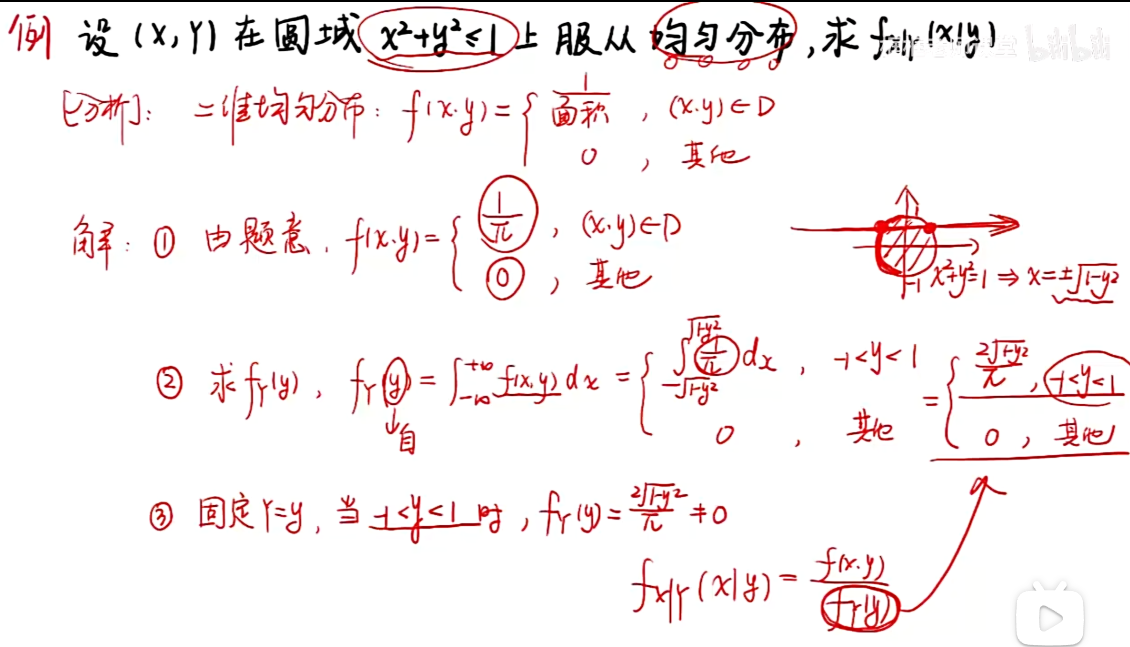 例 设(X,Y)在圆域 x²+y²≤1 上服从均匀分布,求f_{X|Y}(x|y)
bilibili
[分析]: 二维均匀分布: f(x,y)= { 1/面积 , (x,y)∈D
0 , 其他
解: ① 由题意, f(x,y)= { 1/π , (x,y)∈D
0 , 其他
1
-1 x²+y²=1 ⇒ x=±√(1-y²)
② 求f_Y(y), f_Y(y) = ∫_{-∞}^{+∞} f(x,y)dx = { ∫_{-√(1-y²)}^{√(1-y²)} 1/π dx , -1<y<1 = { 2√(1-y²)/π , -1<y<1
0 , 其他 0 , 其他
↓自
③ 固定Y=y, 当 -1<y<1 时, f_Y(y)= 2√(1-y²)/π ≠0
f_{X|Y}(x|y) = f(x,y)/f_Y(y)